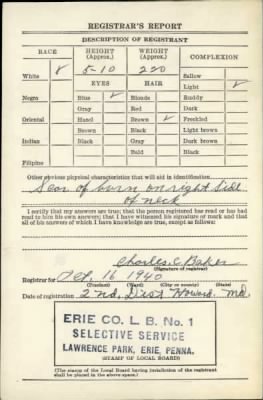 REGISTRAR'S REPORT
DESCRIPTION OF REGISTRANT
RACE HEIGHT (Approx.) WEIGHT (Approx.) COMPLEXION
White ✓ 5-10 220 Sallow
EYES HAIR Light ✓
Negro Blue ✓ Blonde Ruddy
Gray Red Dark
Oriental Hazel Brown ✓ Freckled
Brown Black Light brown
Indian Black Gray Dark brown
Bald Black
Filipino
Other obvious physical characteristics that will aid in identification
Scar of burn on right side
of neck
I certify that my answers are true; that the person registered has read or has had
read to him his own answers; that I have witnessed his signature or mark and that
all of his answers of which I have knowledge are true, except as follows:
Charles C. Baker
(Signature of registrar)
Registrar for
(Precinct) (Ward) (City or county) (State)
Oct. 16 1940
Date of registration 2nd, Dist Howard Md.
ERIE CO. L. B. No. 1
SELECTIVE SERVICE
LAWRENCE PARK, ERIE, PENNA.
(STAMP OF LOCAL BOARD)
(The stamp of the Local Board having jurisdiction of the registrant
shall be placed in the above space.)